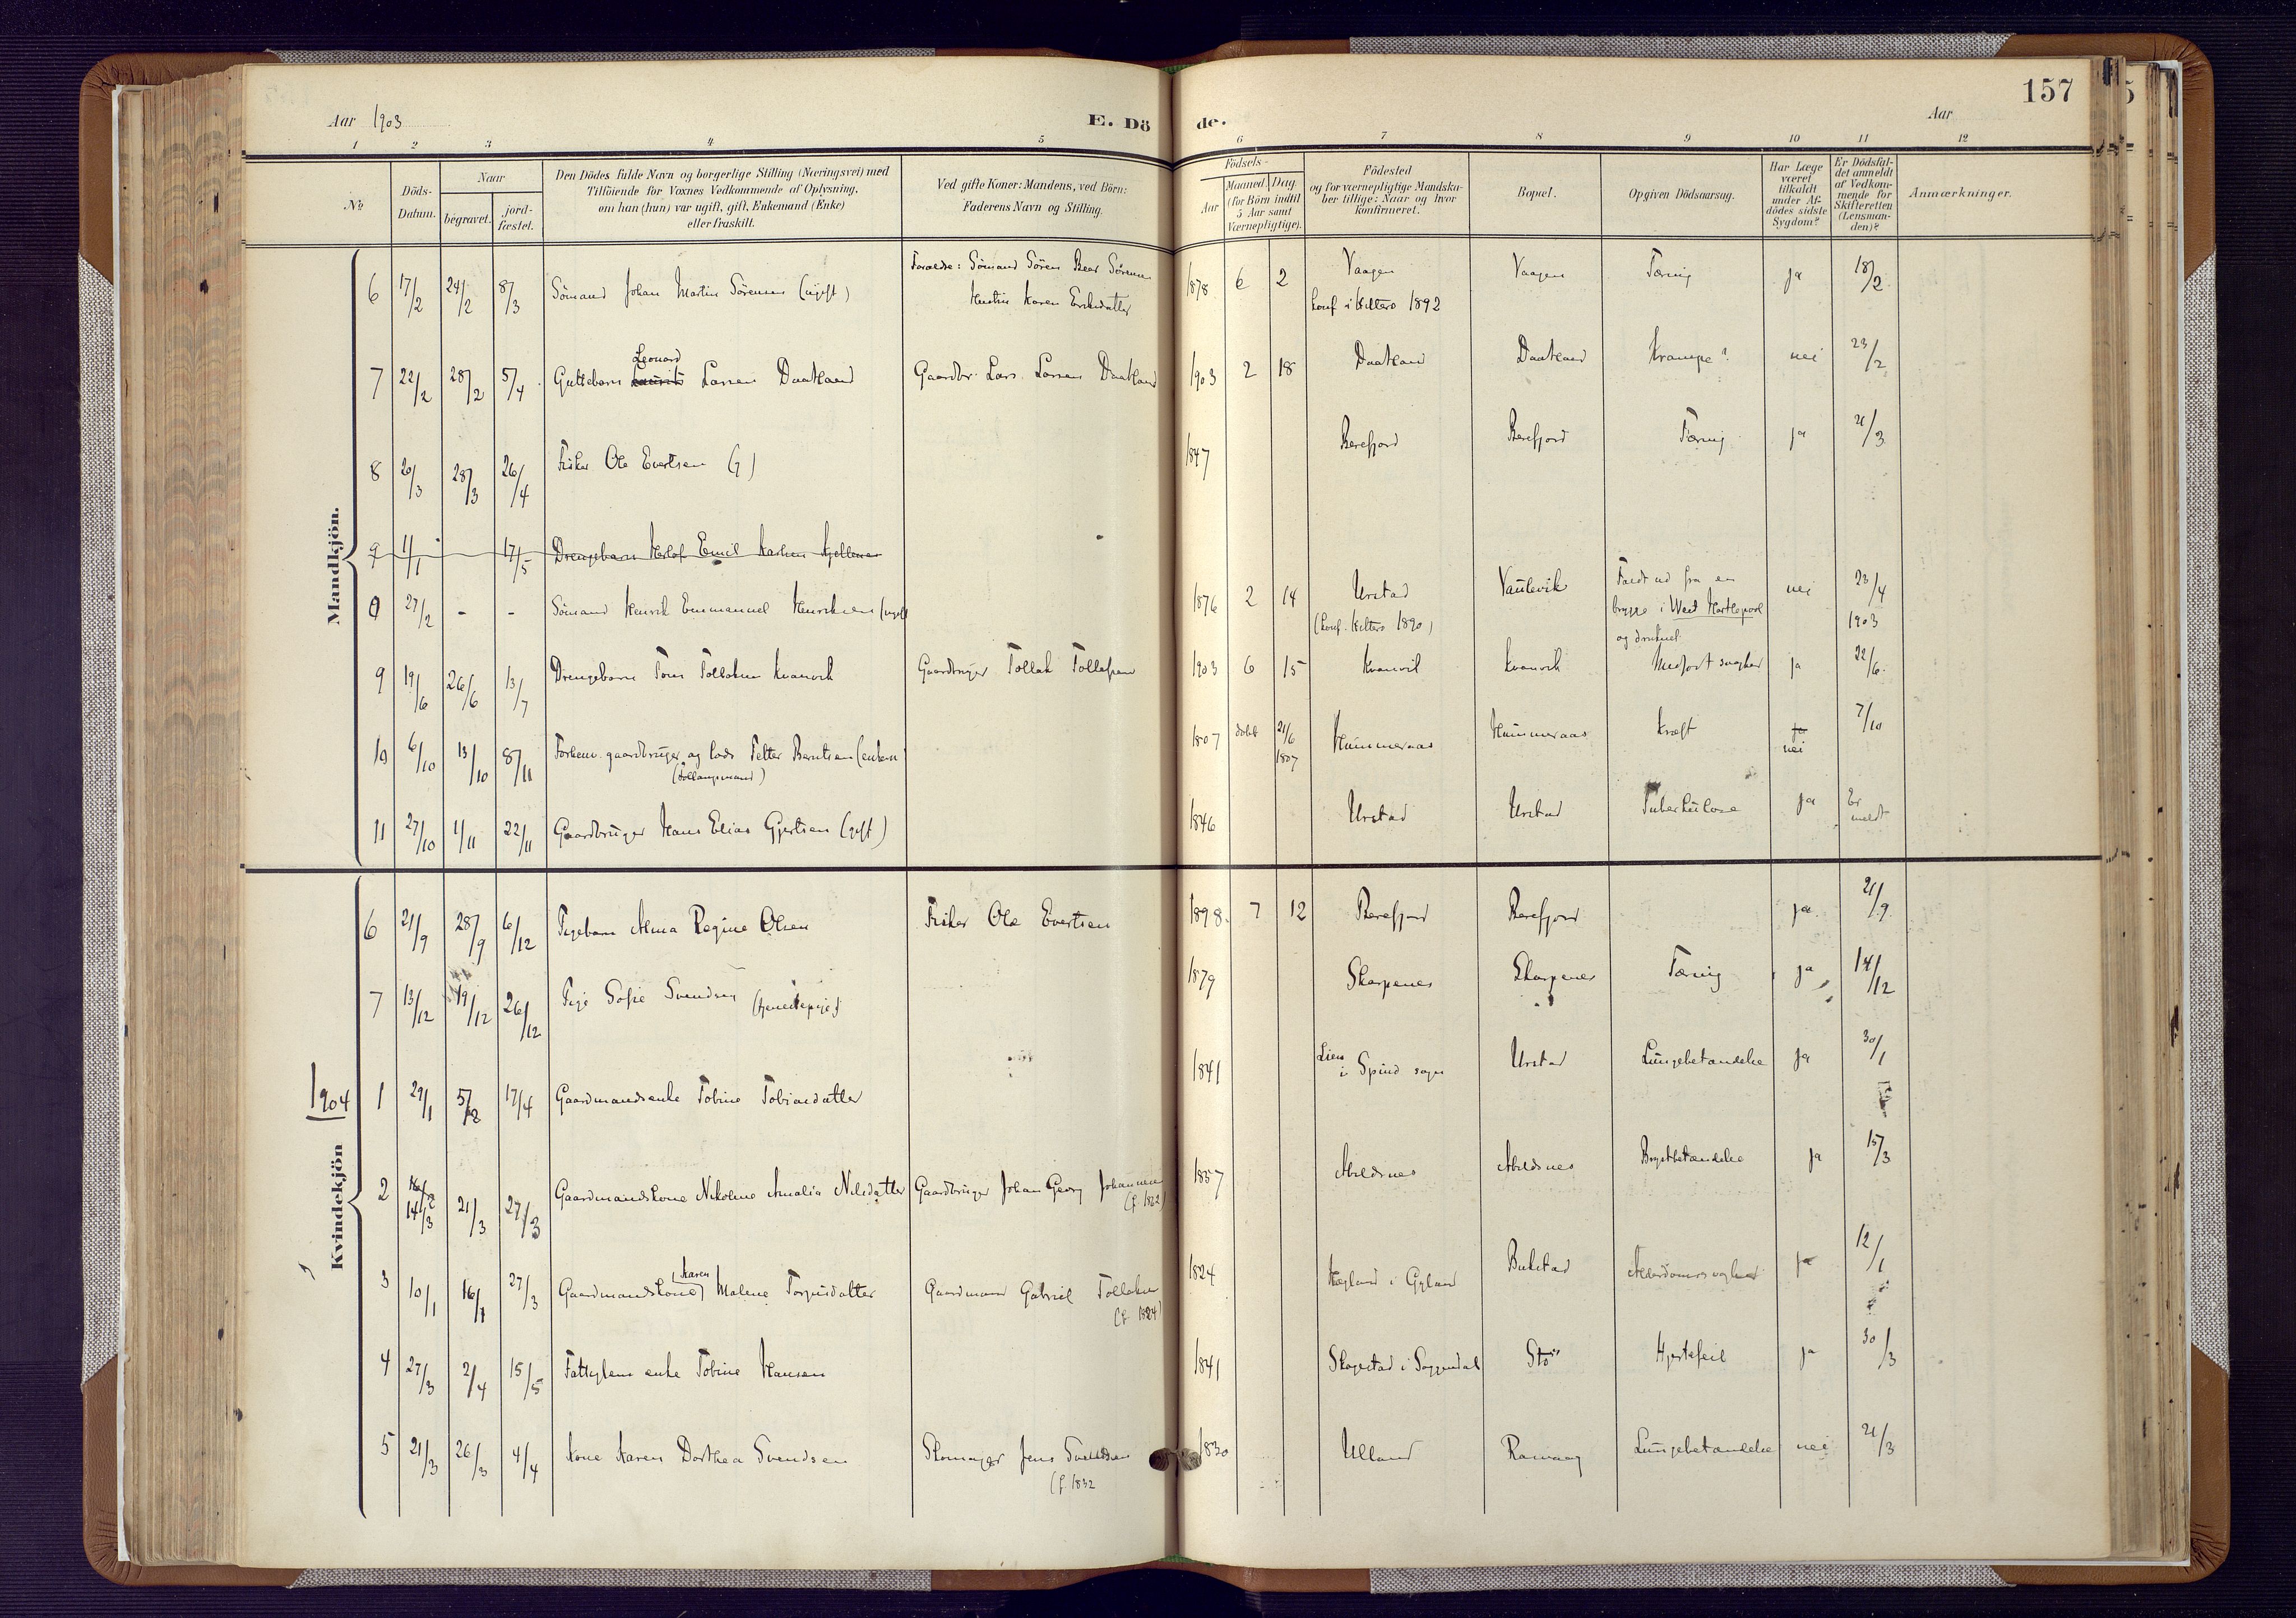 Aar 1903
E. Dö
de.
Aar
157
1 2 3 4 5 6 7 8 9 10 11 12
No
Döds-Datum.
Naar
begravet.
jord-fæstet.
Den Dödes fulde Navn og borgerlige Stilling (Næringsvei) med
Tilföiende for Voxnes Vedkommende af Oplysning,
om han (hun) var ugift, gift, Enkemand (Enke)
eller fraskilt.
Ved gifte Koner: Mandens, ved Börn:
Faderens Navn og Stilling.
Födsels-
Aar
Maaned. Dag.
(for Börn indtil
5 Aar samt
Værnepligtige).
Födested
og for værnepligtige Mandska-
ber tillige: Naar og hvor
konfirmeret.
Bopæl.
Opgiven Dödsaarsag.
Har Læge
været
tilkaldt
under Af-
dödes sidste
Sygdom?
Er Dödsfal-
det anmeldt
af Vedkom-
mende for
Skifteretten
(Lensman-
den)?
Anmærkninger.
Mandkjön.
6 17/2 24/2 8/3 Sömand Johan Martin Sörensen (ugift) Forældre: Sömand Sören Beer Sörensen
Hustru Karen 1878 6 2 Vaagen
konf i Hitterö 1892 Vaagen Tæring ja 18/2
7 22/2 28/2 5/4 Guttebarn Leonard Larsen Daatland Gaardbr. Lars Larsen Daatland 1903 2 18 Daatland Daatland Krampe? nei 23/2
8 20/3 28/3 26/4 Fisker Ole Evertsen (g) 1847 Berefjord Berefjord Tæring ja 21/3
9 1/1 17/5 Drengebarn Emil
9 27/2 - - Sömand Henrik Emmanuel Henriksen (ugift 1876 2 14 Urstad
(konf. Hitterö 1890) Vaulevik Faldt ud fra en
brygge i West Hartlepool
og druknet nei 23/4
1903
9 19/6 26/6 13/7 Drengebarn Tom Tollaksen Kvanvik Gaardbruger Tollak Tollaksen 1903 6 15 Kvanvik Kvanvik Medfödt svaghed ja 22/6
10 6/10 13/10 8/11 Forhenv. gaardbruger og lods Petter Berntsen (enkem
1807 döbt 21/6
1807 Hummeraas Hummeraas Kræft ja
nei 7/10
11 27/10 1/11 22/11 Gaardbruger Hans Elias Gjertsen (gift) 1846 Urstad Urstad Tuberkulose ja Er
meldt
Kvindekjön
6 21/9 28/9 6/12 Pigebarn Alma Regine Olsen Fisker Ole Evertsen 1898 7 12 Berefjord Berefjord ja 21/9
7 13/12 19/12 26/12 Pige Sofie Svendsen (tjenestepige) 1879 Skarpenes Skarpenes Tæring ja 14/12
1904
1 29/1 5/2 17/4 Gaardmandsenke Tobine Tobiasdatter 1841 Lien
i Spind sogn Urstad Lungebetændelse ja 30/1
2 14/3 21/3 27/3 Gaardmandskone Nikoline Amalia Nilsdatter Gaardbruger Johan Georg Johannesen
(f. 1832) 1837 Abildsnes Abildsnes Brystbetændelse ja 15/3
3 10/1 16/1 27/3 Gaardmandskone Karen Malene Torjusdatter Gaardmand Gabriel Tollaksen
(f. 1824) 1824 Hægland i Gyland Bukstad Alderdomssvaghed ja 12/1
4 27/3 2/4 15/5 Fattiglem enke Tobine Hansen 1841 Skogestad i Soggendal Stö Hjertefeil ja 30/3
5 21/3 26/3 4/4 Kone Karen Dorthea Svendsen Skomager Jens Svendsen
(f. 1832 1830 Ulland Rasvaag Lungebetændelse nei 21/3